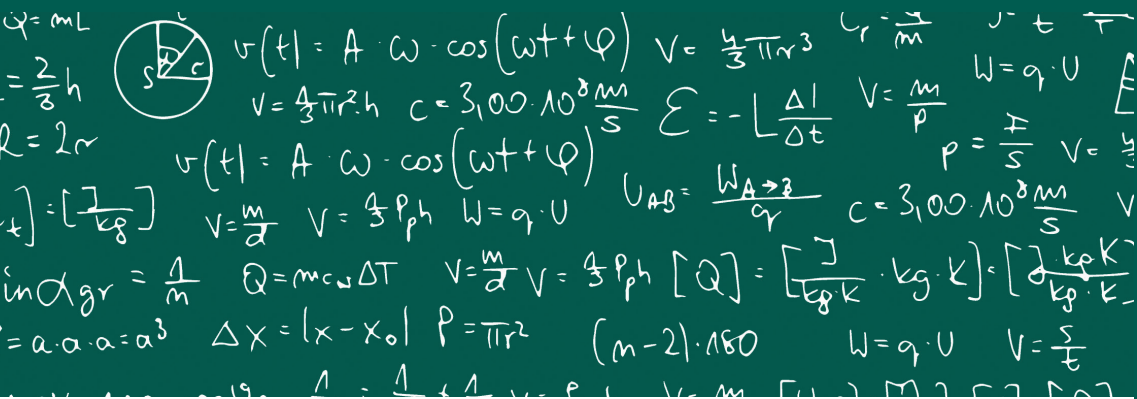 Q = mL
v(t) = A · ω · cos(ωt + φ) V = 4/3 πr³
W = q · U
= 2/3 h
S r
V = 1/3 πr² · h c = 3,00 · 10⁸ m/s ℰ = -L ΔI/Δt V = m/ρ
R = 2r
v(t) = A · ω · cos(ωt + φ) p = F/S
] = [J/kg] V = m/d V = 1/3 Pph W = q · U U_AB = W_A→B/q c = 3,00 · 10⁸ m/s
sin αgr = 1/n Q = mc_wΔT V = m/d V = 1/3 Pph [Q] = [J/kg·K · kg · K] = [J · kg · K/kg · K]
= a · a · a = a³ Δx = |x - x₀| P = πr² (n-2) · 180 W = q · U V = s/t